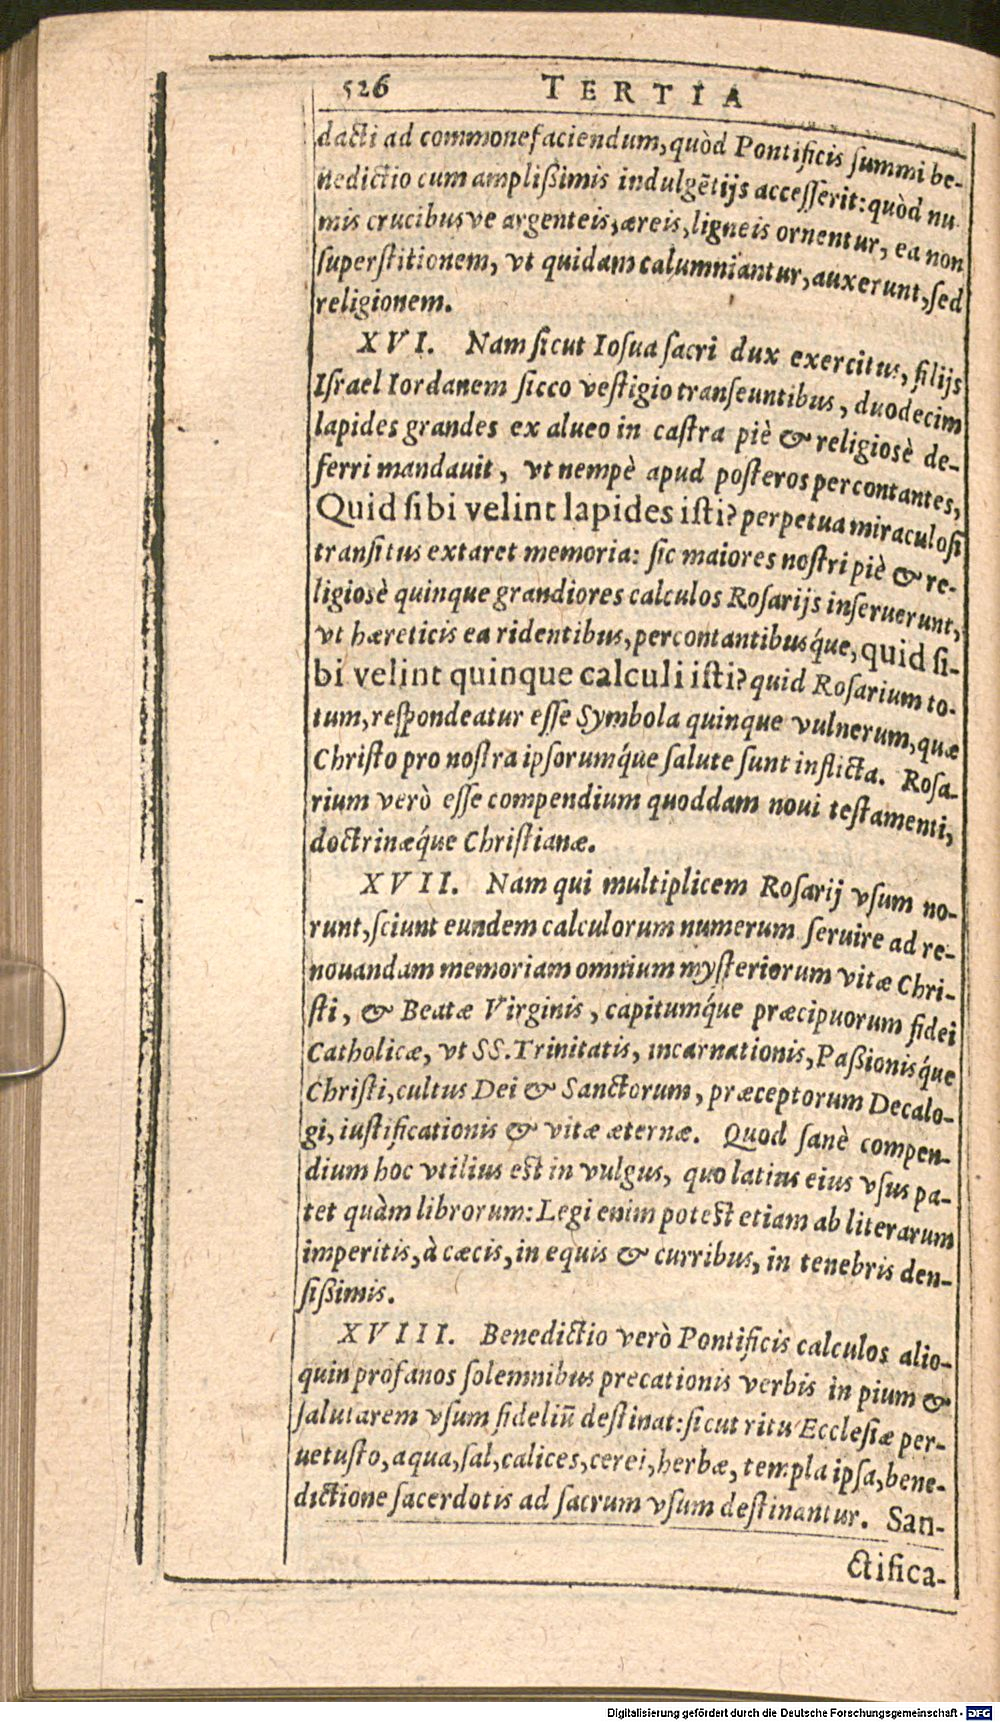 526 TERTIA
dacti ad commonefaciendum, quòd Pontificis ſummi be-
nedictio cum amplißimis indulgẽtijs acceſſerit: quòd nu
mis crucibusve argenteis, æreis, ligneis ornentur, ea non
ſuperſtitionem, vt quidam calumniantur, auxerunt, ſed
religionem.
XVI. Nam ſicut Ioſua ſacri dux exercitus, filijs
Iſrael Iordanem ſicco veſtigio tranſeuntibus, duodecim
lapides grandes ex alueo in caſtra piè & religiosè de-
ferri mandauit, vt nempè apud poſteros percontantes,
Quid ſibi velint lapides iſti? perpetua miraculoſi
tranſitus extaret memoria: ſic maiores noſtri piè & re-
ligiosè quinque grandiores calculos Roſarijs inſeruerunt,
vt hæreticis ea ridentibus, percontantibusq́ue, quid ſi-
bi velint quinque calculi iſti? quid Roſarium to-
tum, reſpondeatur eſſe Symbola quinque vulnerum, quæ
Chriſto pro noſtra ipſorumq́ue ſalute ſunt inflicta. Roſa-
rium verò eſſe compendium quoddam noui teſtamenti,
doctrinæq́ue Chriſtianæ.
XVII. Nam qui multiplicem Roſarij vſum no-
runt, ſciunt eundem calculorum numerum ſeruire ad re-
nouandam memoriam omnium myſteriorum vitæ Chri-
ſti, & Beatæ Virginis, capitumq́ue præcipuorum fidei
Catholicæ, vt SS. Trinitatis, incarnationis, Paßionisq́ue
Chriſti, cultus Dei & Sanctorum, præceptorum Decalo-
gi, iuſtificationis & vitæ æternæ. Quod ſanè compen-
dium hoc vtilius eſt in vulgus, quo latius eius vſus pa-
tet quàm librorum: Legi enim poteſt etiam ab literarum
imperitis, à cæcis, in equis & curribus, in tenebris den-
ſißimis.
XVIII. Benedictio verò Pontificis calculos alio-
quin profanos ſolemnibus precationis verbis in pium &
ſalutarem vſum fideliũ deſtinat: ſicut ritu Eccleſiæ per-
uetuſto, aqua, ſal, calices, cerei, herbæ, templa ipſa, bene-
dictione ſacerdotis ad ſacrum vſum deſtinantur. San-
ctifica-
Digitalisierung gefördert durch die Deutsche Forschungsgemeinschaft - DFG